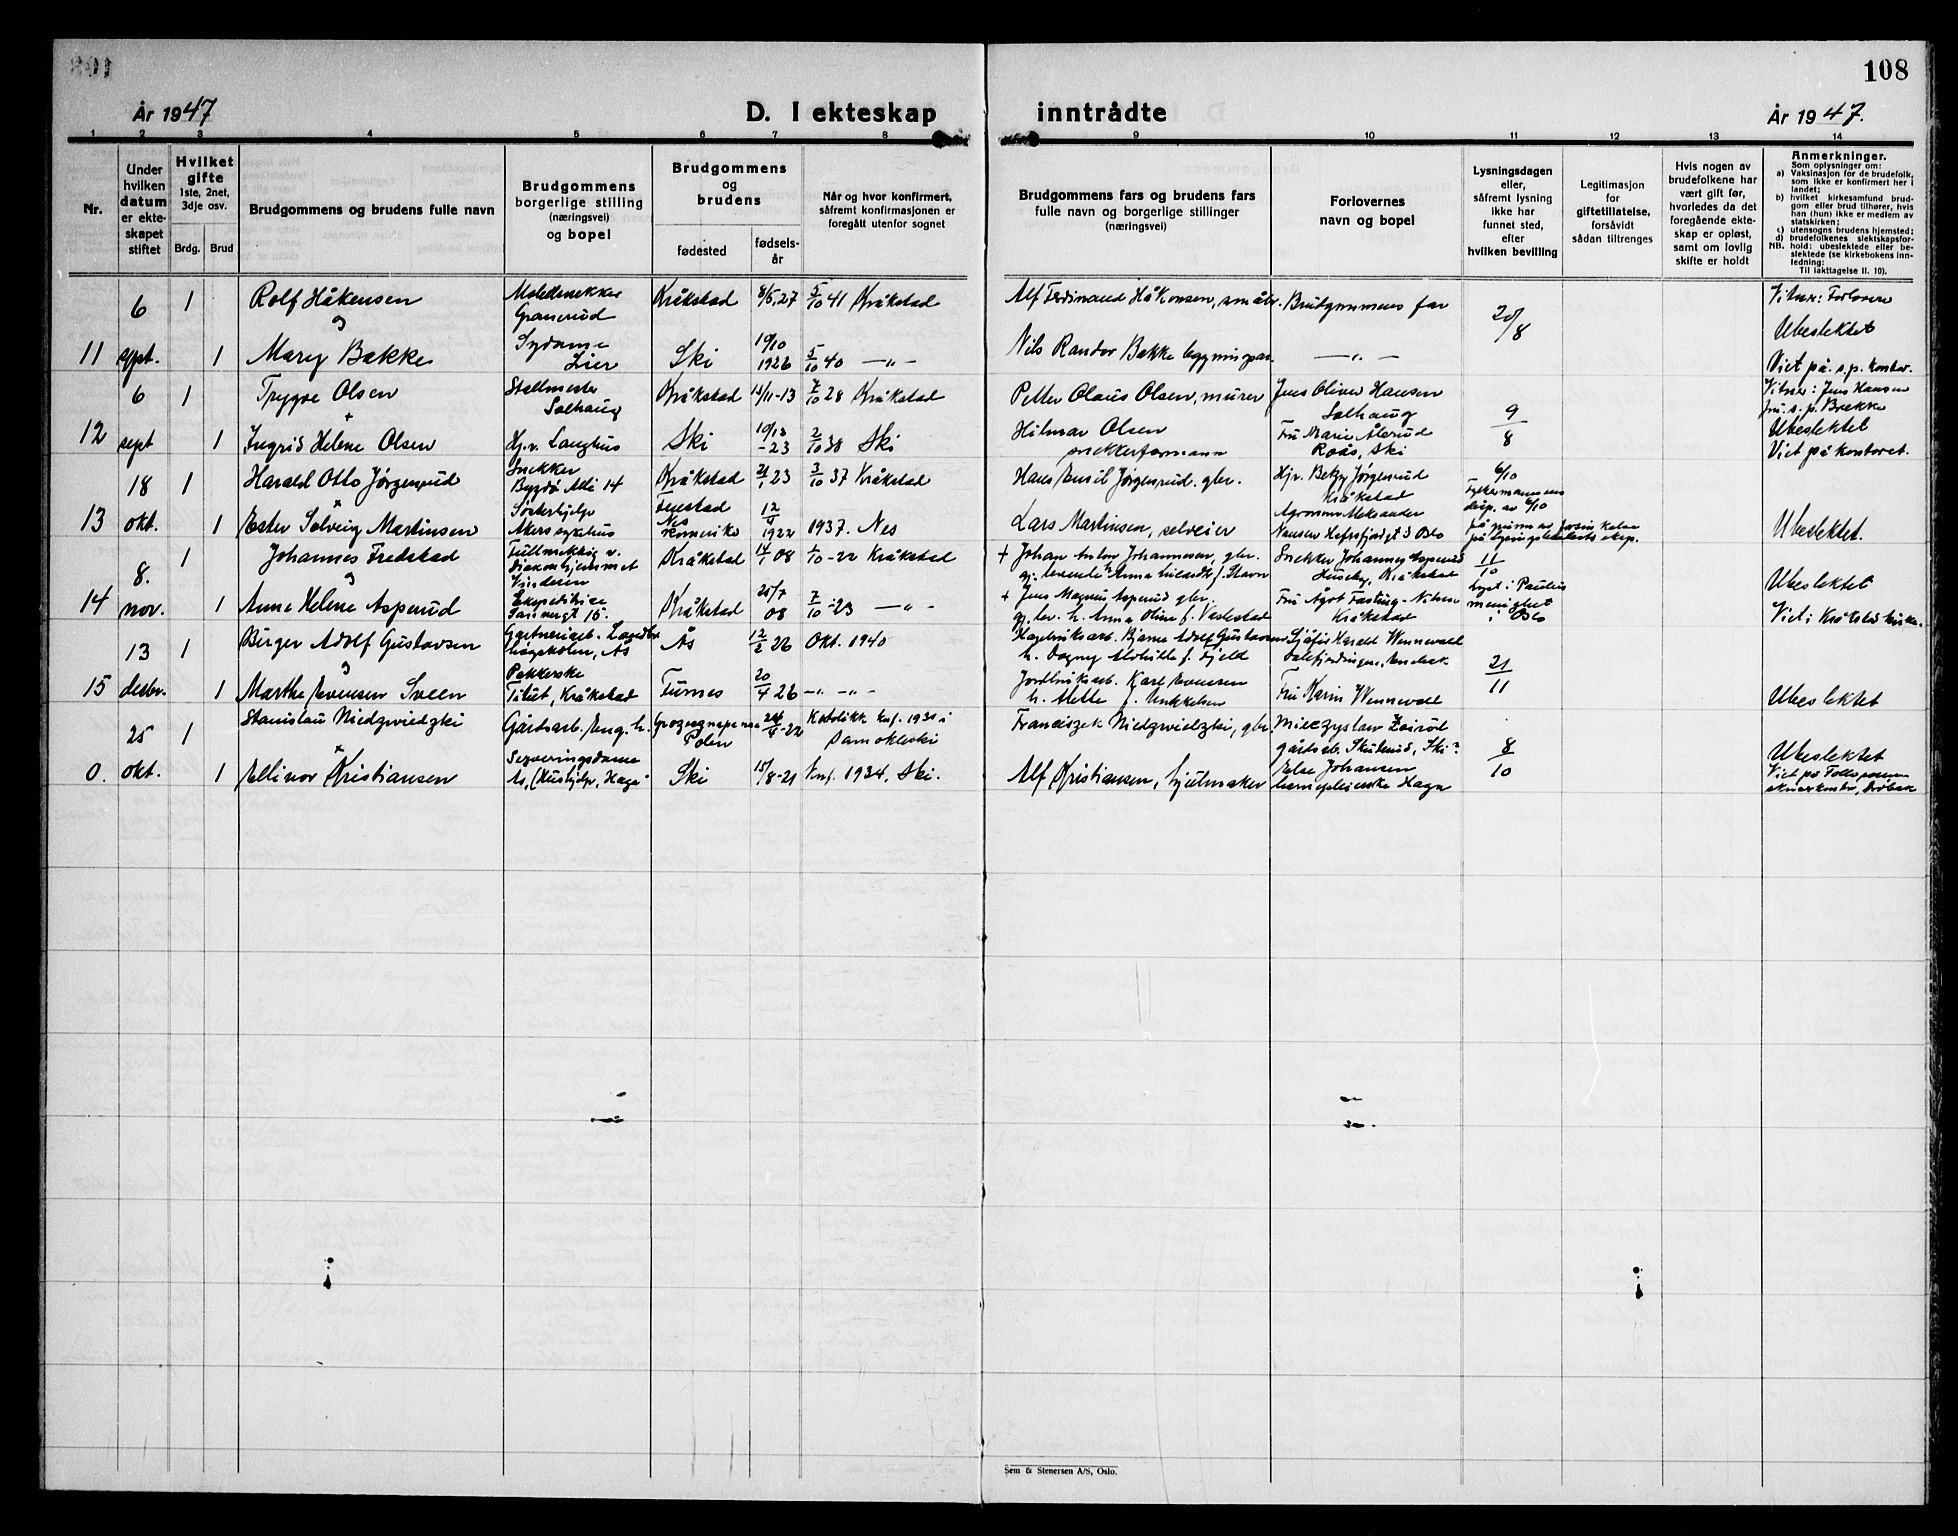 108
År 1947
D. I ekteskap inntrådte
År 1947.
1 2 3 4 5 6 7 8 9 10 11 12 13 14
Nr.
Under
hvilken
datum
er ekte-
skapet
stiftet
Hvilket
gifte
1ste, 2net,
3dje osv.
Brdg. Brud
Brudgommens og brudens fulle navn
Brudgommens
borgerlige stilling
(næringsvei)
og bopel
Brudgommens
og
brudens
fødested
fødsels-
år
Når og hvor konfirmert,
såfremt konfirmasjonen er
foregått utenfor sognet
Brudgommens fars og brudens fars
fulle navn og borgerlige stillinger
(næringsvei)
Forlovernes
navn og bopel
Lysningsdagen
eller,
såfremt lysning
ikke har
funnet sted,
efter
hvilken bevilling
Legitimasjon
for
giftetillatelse,
forsåvidt
sådan tiltrenges
Hvis nogen av
brudefolkene har
vært gift før,
hvorledes da det
foregående ekte-
skap er opløst,
samt om lovlig
skifte er holdt
Anmerkninger.
Som oplysninger om:
a) Vaksinasjon for de brudefolk,
som ikke er konfirmert her i
landet;
b) hvilket kirkesamfund brud-
gom eller brud tilhører, hvis
han (hun) ikke er medlem av
statskirken;
c) utensogns brudens hjemsted;
d) brudefolkenes slektskapsfor-
NB. hold: ubeslektede eller be-
slektede (se kirkebokens inn-
ledning:
Til iakttagelse II. 10).
6 1 Rolf Håkensen
Granerud Kråkstad 8/5.27 5/10 41 Kråkstad
Alf Ferdinand Håkonsen, småbr. Brudgommens far
20/8
Vitner: Forlovere
Ubeslektet
11 sept. 1 Mary Bakke
Sydame
Lier Ski 19/10 1926 5/10 40 —"—
Nils Randor Bakke bygningsar. —"—
Viet på s.p. kontor.
6 1 Trygve Olsen
Stallmester
Solhaug Kråkstad 13/11-13 7/10 28 Kråkstad
Petter Olaus Olsen, murer Jens Oliver Hansen
Solhaug
9/8
Vitner: Jens Hansen
fru s.p. Brække
Ubeslektet
12 sept 1 Ingrid Helene Olsen
Hj.v. Langhus Ski 19/13 -23 2/10 38 Ski
Hilmar Olsen
snekkerformann
Fru Marie Ålerud
Roås, Ski
Viet på kontoret.
18 1 Harald Otto Jørgensrud
Snekker
Bygdø Alle 14 Kråkstad 21/1 23 3/10 37 Kråkstad
Hans Emil Jørgensrud. gbr. Hjr. Betzy Jørgensrud
Kråkstad
6/10
Fylkesmannens
disp. av 6/10
13 okt. 1 Ester Solveig Martinsen
Søsterhjelp
Akers sykehus
Nes
Romerike 12/4 1922 1937. Nes
Lars Martinsen, selveier
Agronom Aleksander
Nansen Hafrsfjordgt 3 Oslo
Ubeslektet.
8. 1 Johannes Fredstad
Fullmektig v.
Diakonhjemmet
Vinderen Kråkstad 14/1 08 1/10-22 Kråkstad
+ Johan Anton Johannesen, gbr.
Snekker Johannes Asperud
Huseby, Kråkstad
11/10
Ubeslektet
14 nov. 1 Anne Helene Asperud
Ekspeditrise Kråkstad 25/7 08 7/10-23 —"—
+ Jens Magnus Asperud gbr.
gj. lev. h. Anna Oline f. Vestestad
Fru Ågot Fasting-Nilsen
Kråkstad
Lyst i Paulus
menighet
i Oslo
Viet i Kråkstad kirke.
13 1 Birger Adolf Gustavsen
Gartneriarb. Landbr.
høgskolen, Ås Ås 12/2 26 Okt. 1940
Hagebruksarb. Bjarne Adolf Gustavsen
h. Dagny Mathilde f. Fjeld
Sjåfør Harald Wennevold
21/11
15 desbr. 1 Marthe Evensen Sveen
Pakkerske
Titut, Kråkstad Furnes 20/4 26 —"— —"—
Jordbruksarb. Karl Evensen
h. Mette f. Mikkelsen
Fru Karin Wennevold
Ubeslektet
25 1 Stanislau Niedzwiedzki
Gårdsarb. Eng. h.
Polen 24/4-22 Katolikk konf. 1931 i
Samokleski
Franciszek Niedzwiedzki, gbr.
gårdsarb. Skuterud, Ski
8/10
Ubeslektet
0. okt. 1 Ellinor Kristiansen
Serveringsdame
Ås, (Hushjelp, Haga Ski 15/8-21 Konf. 1934, Ski.
Alf Kristiansen, hjulmaker
Else Johansen
barnepleierske Haga
Viet på Follo sorenskriverkontor, Drøbak
Sem & Stenersen A/S, Oslo.